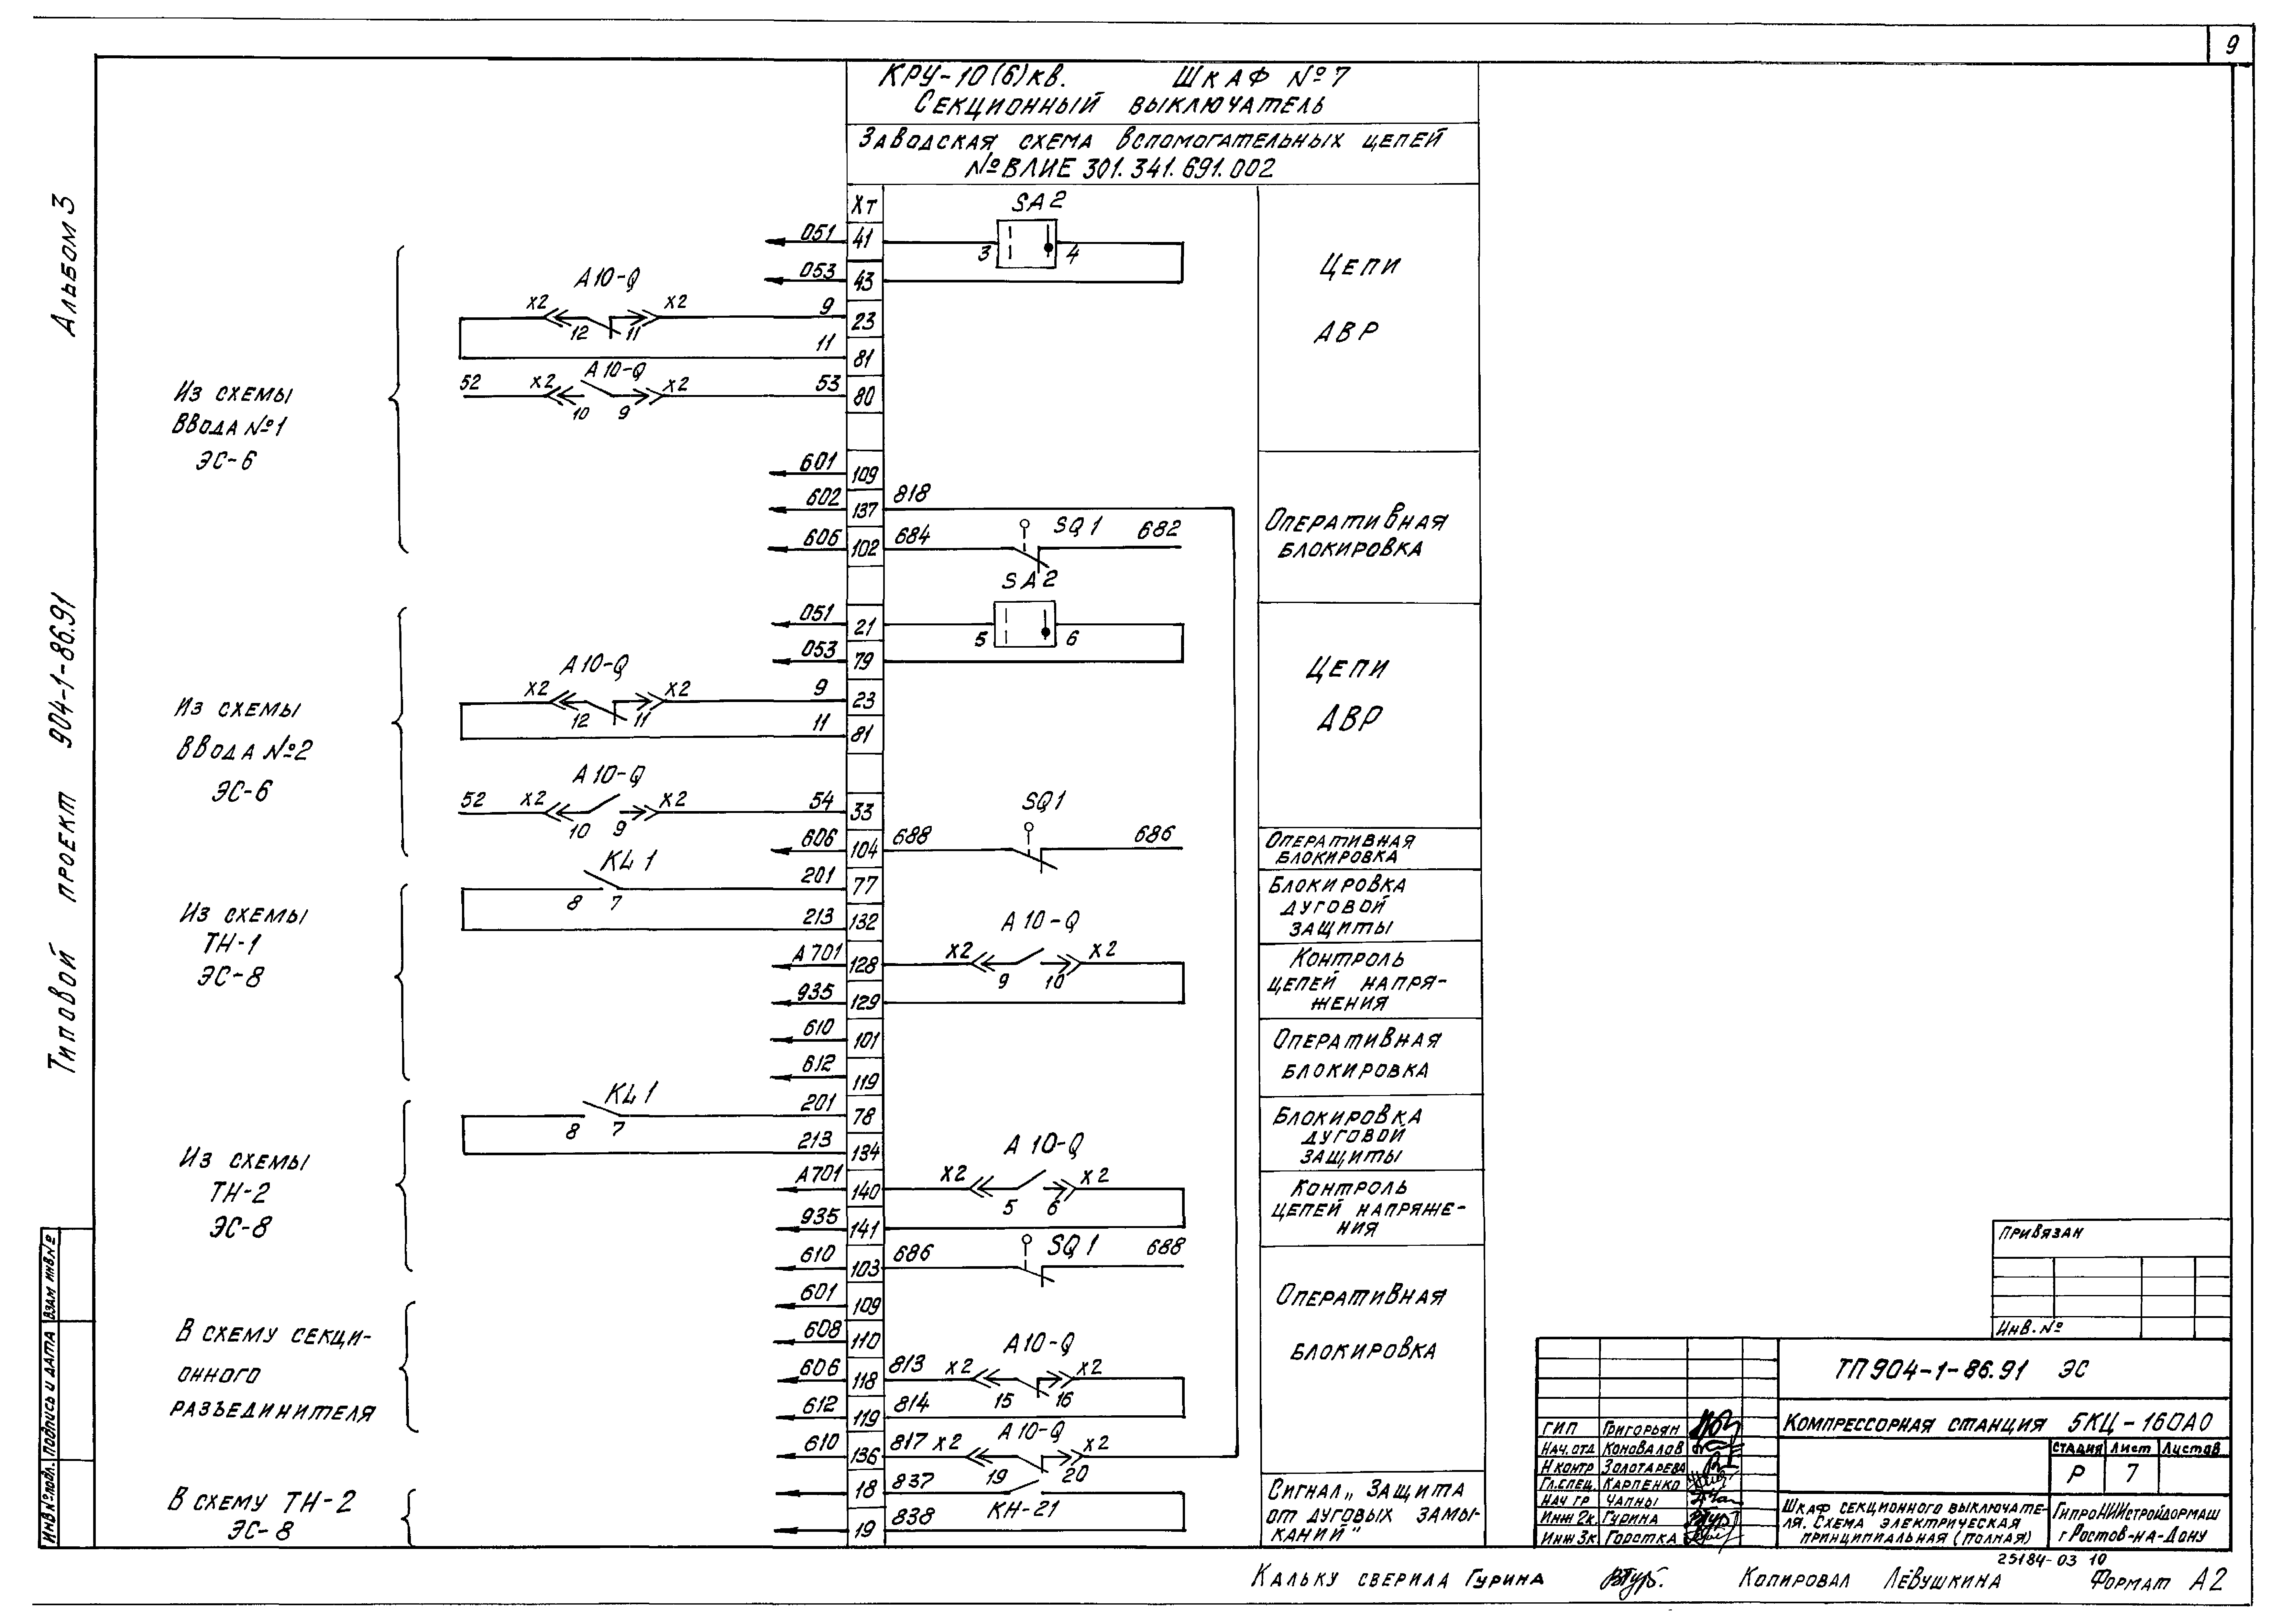 9
КРУ-10(6)кв. Шкаф №7
Секционный выключатель
Заводская схема вспомогательных цепей
№ВЛИЕ 301.341.691.002
Альбом 3
Типовой проект 904-1-86.91
Из схемы
ввода №1
ЭС-6
Из схемы
ввода №2
ЭС-6
Из схемы
ТН-1
ЭС-8
Из схемы
ТН-2
ЭС-8
В схему секци-
онного
разъединителя
В схему ТН-2
ЭС-8
ХТ
SA2
051 41 3 4
053 43
A10-Q
X2 12 11 X2 9 23
11 81
A10-Q
52 X2 10 9 X2 53 80
601 109
602 137 818
606 102 684 SQ1 682
SA2
051 21 5 6
053 79
A10-Q
X2 12 11 X2 9 23
11 81
A10-Q
52 X2 10 9 X2 54 33
SQ1
606 104 688 686
KL1
8 7 201 77
213 132
A10-Q
A701 128 X2 9 10 X2
935 129
610 101
612 119
KL1
8 7 201 78
213 134
A10-Q
A701 140 X2 5 6 X2
935 141
610 103 686 SQ1 688
601 109
608 110
A10-Q
606 118 813 X2 15 16 X2
612 119 814
A10-Q
610 136 817 X2 19 20 X2
18 837
КН-21
19 838
Цепи
АВР
Оперативная
блокировка
Цепи
АВР
Оперативная
блокировка
Блокировка
дуговой
защиты
Контроль
цепей напря-
жения
Оперативная
блокировка
Блокировка
дуговой
защиты
Контроль
цепей напряже-
ния
Оперативная
блокировка
Сигнал „Защита
от дуговых замы-
каний"
Привязан
Инв.№
ТП904-1-86.91 ЭС
Компрессорная станция 5КЦ-160А0
Стадия Лист Листов
Р 7
Шкаф секционного выключате-
ля. Схема электрическая
принципиальная (полная)
ГипроНИИстройдормаш
г Ростов-на-Дону
ГИП Григорьян
Нач.отд Коновалов
Н контр Золотарева
Гл.спец. Карпенко
Нач гр Чапны
Инж 2к. Гурина
Инж 3к. Горотка
Инв№подл. Подпись и дата Взам инв.№
25184-03 10
Кальку сверила Гурина Копировал Лёвушкина Формат А2